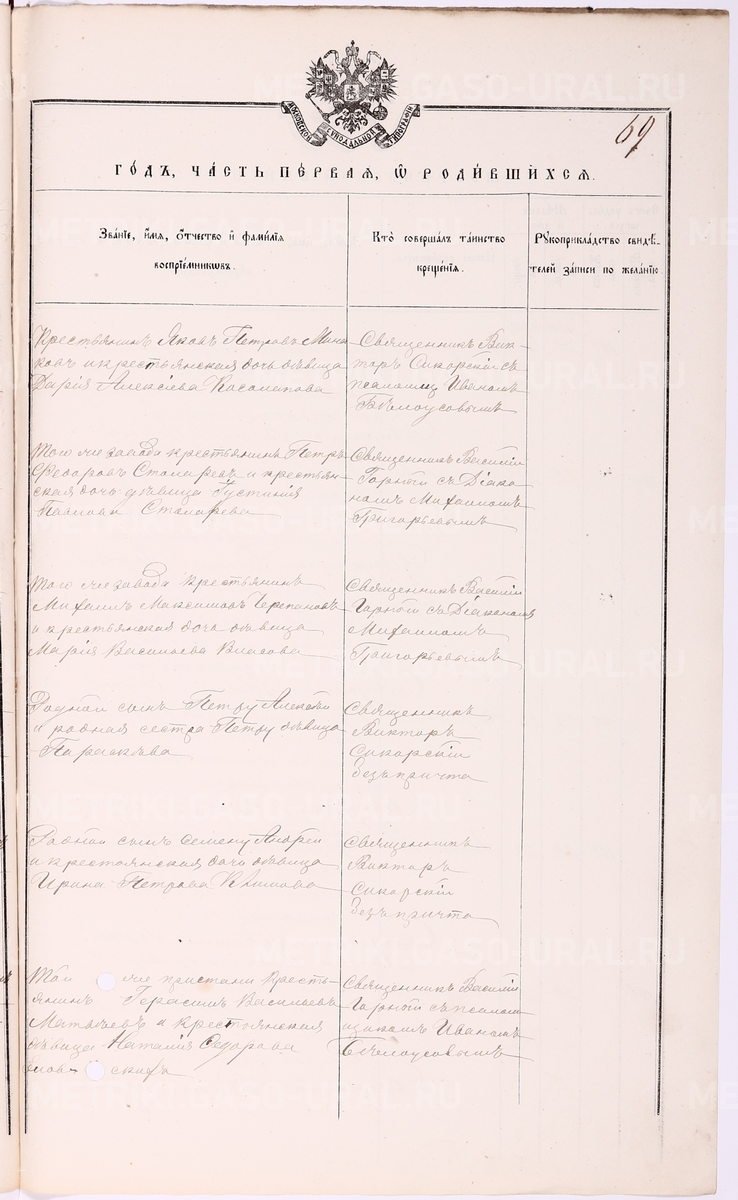 МОСКОВСКОЙ СѴНОДАЛЬНОЙ ТИПОГРАФІИ
69
ГО́ДЪ, ЧА́СТЬ ПЕ́РВАЯ, Ѿ РОДИ́ВШИХСЯ.
Зва́нїе, и́мя, о́тчество и҆ фами́лїя
воспрїе́мниковъ.
Кто̀ соверша́лъ та́инство
креще́нїя.
Рꙋкоприкла́дство свидѣ́-
телей за́писи по жела́нїю
Крестьянинъ Яковъ Петровъ
ковъ и крестьянская дочь дѣвица
Дарія Алексіева Косолапова
Священникъ Вик-
торъ Сикорскій съ
псаломщ Иваномъ
Бѣлоусовымъ
Того же завода крестьянинъ Петръ
Ѳедоровъ Столяревъ и крестьян-
ская дочь дѣвица Іустинія
Павлова Столярева
Священникъ Василій
Горный съ Діако
номъ Михаиломъ
Григорьевымъ
Того же завода крестьянинъ
Михаилъ Максимовъ Черепановъ
и крестьянская дочь дѣвица
Марія Васильева Власова
Священникъ Василій
Горный съ Діакономъ
Михаиломъ
Григорьевымъ
Родной сынъ Петру Алексѣй
и родная сестра Петру дѣвица
Параскева
Священникъ
Викторъ
Сикорскій
безъ причта
Родной сынъ Семену Андрей
и крестьянская дочь дѣвица
Ирина Петрова Климова
Священникъ
Викторъ
Сикорскій
безъ причта
Той же пристани Кресть-
янинъ Герасимъ Васильевъ
Матвѣевъ и крестьянская
дѣвица Наталія Ѳедорова
Священникъ Василій
Горный съ псалом
щикомъ Иваномъ
Бѣлоусовымъ
METRIKI.GASO-URAL.RU